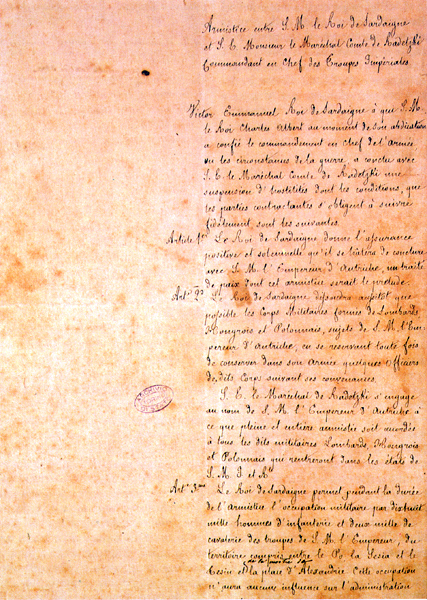 Armistice entre S. M. le Roi de Sardaigne
et S. E. Monsieur le Maréchal Comte de Radetzki
Commandant en Chef des Troupes Impériales.
Victor Emmanuel Roi de Sardaigne à qui S. M.
le Roi Charles Albert au moment de son abdication
a confié le commandement en chef de l'Armée
vu les circonstances de la guerre, a conclu avec
S. E. le Maréchal Comte de Radetzki une
suspension d'hostilités dont les conditions, que
les parties contractantes s'obligent à suivre
fidèlement sont les suivantes.
Article 1er Le Roi de Sardaigne donne l'assurance
positive et solennelle qu'il se hâtera de conclure
avec S. M. l'Empereur d'Autriche, un traité
de paix dont cet armistice serait le prélude.
Art. 2e Le Roi de Sardaigne dissoudra aussitôt que
possible les Corps Militaires formés de Lombards
Hongrois et Polonnais, sujets de S. M. l'Em-
pereur d'Autriche, en se réservant toute fois
de conserver dans son Armée quelques Officiers
des dits Corps suivant ses convenances.
S. E. le Maréchal de Radetzki s'engage
au nom de S. M. l'Empereur d'Autriche à
ce que pleine et entière amnistie soit accordée
à tous les dits militaires Lombards, Hongrois
et Polonnais qui rentreront dans les états de
S. M. I. et R.
Art. 3me Le Roi de Sardaigne permet pendant la durée
de l'Armistice l'occupation militaire par dixhuit
mille hommes d'infanterie et deux mille de
cavalerie des troupes de S. M. l'Empereur, du
territoire compris entre le Po la Sesia et le
Tesin et la place d'Alexandrie Cette occupation
n'aura aucune influence sur l'administration